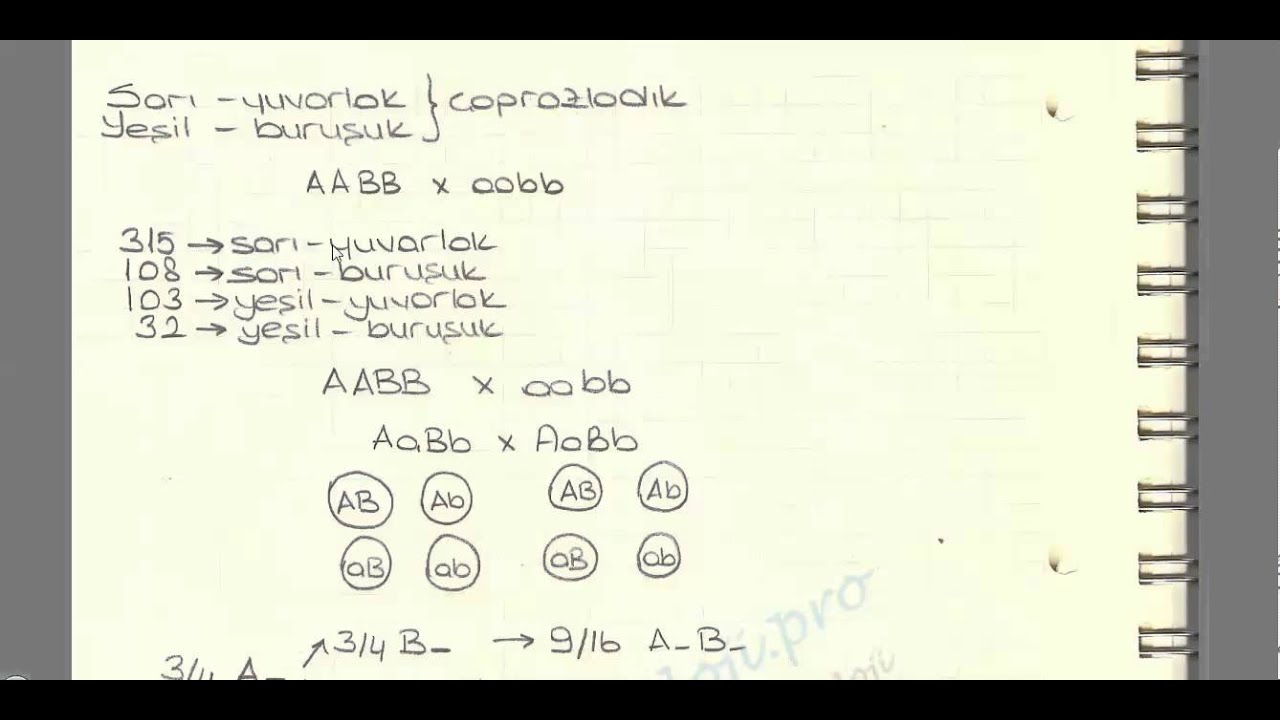 Sarı - yuvarlak } çaprazladık
Yeşil - buruşuk
AABB x aabb
315 → sarı - yuvarlak
108 → sarı - buruşuk
103 → yeşil - yuvarlak
32 → yeşil - buruşuk
AABB x aabb
AaBb x AaBb
AB Ab AB Ab
aB ab aB ab
3/4 B_ → 9/16 A_B_
3/4 A_